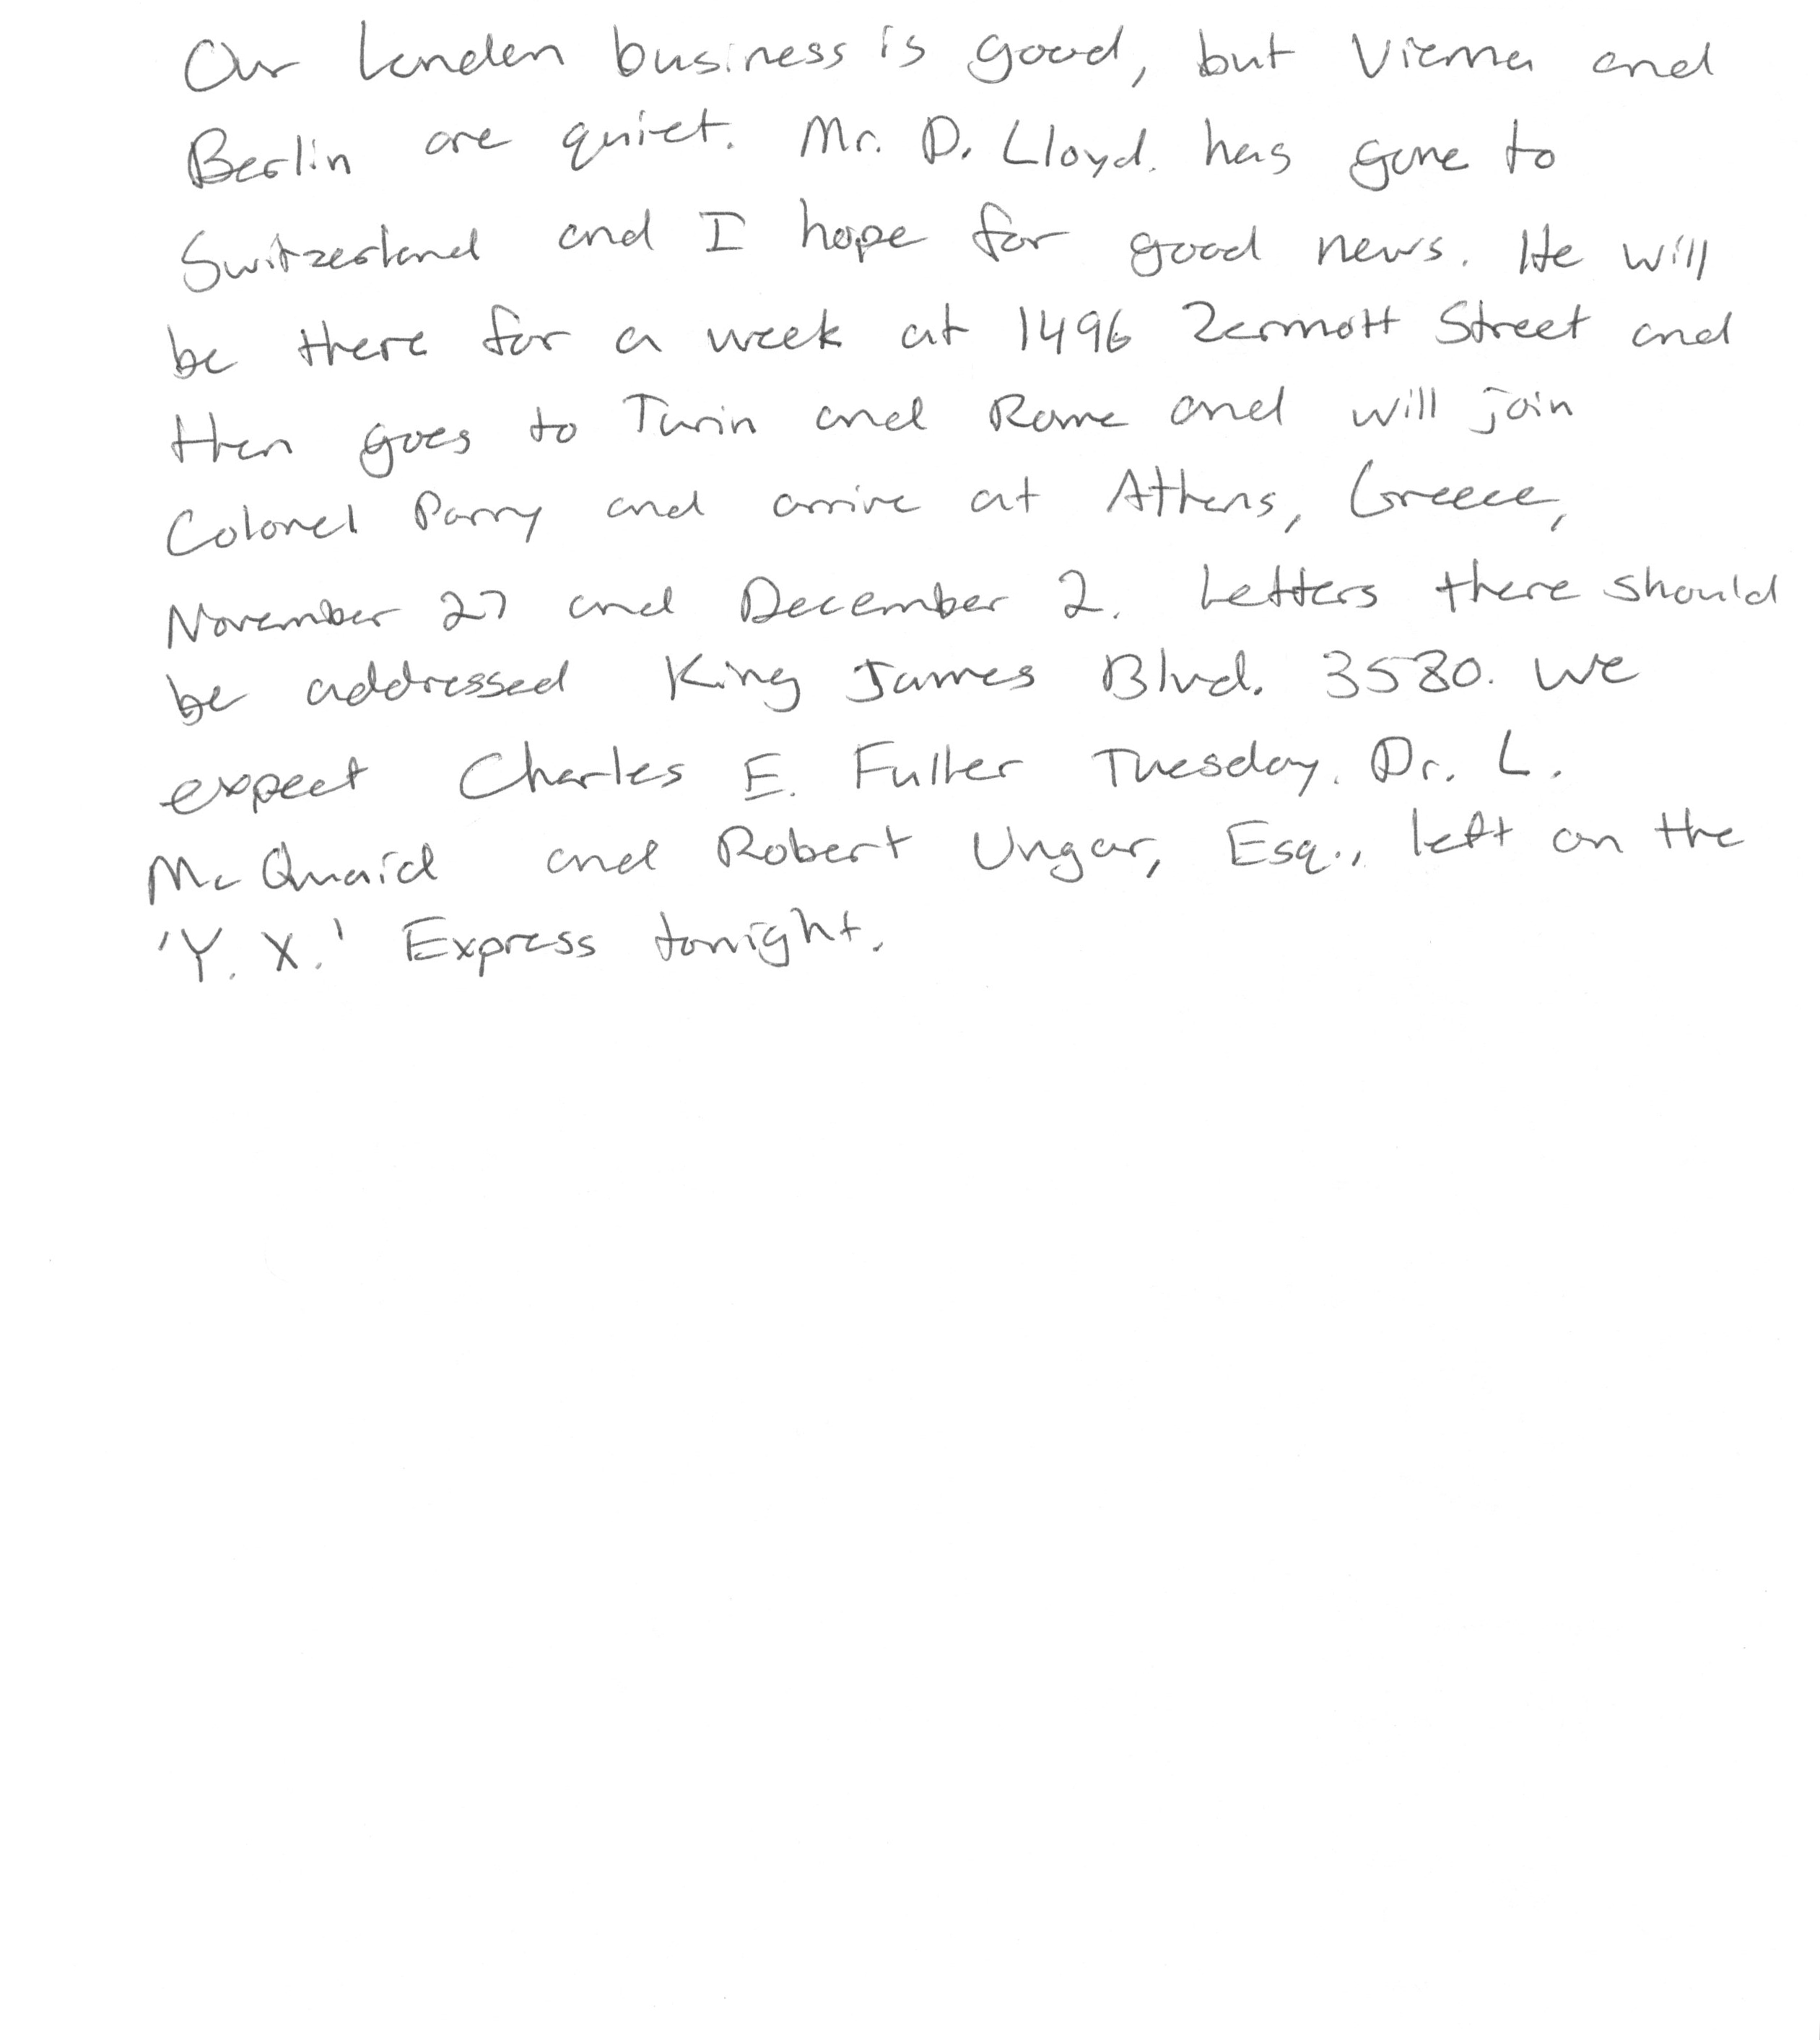 Our London business is good, but Vienna and
Berlin are quiet. Mr. D. Lloyd. has gone to
Switzerland and I hope for good news. He will
be there for a week at 1496 Zermott Street and
then goes to Turin and Rome and will join
Colonel Parry and arrive at Athens, Greece,
November 27 and December 2. Letters there should
be addressed King James Blvd. 3580. We
expect Charles E. Fuller Tuesday. Dr. L.
McQuaid and Robert Ungar, Esq., left on the
'Y. X.' Express tonight.